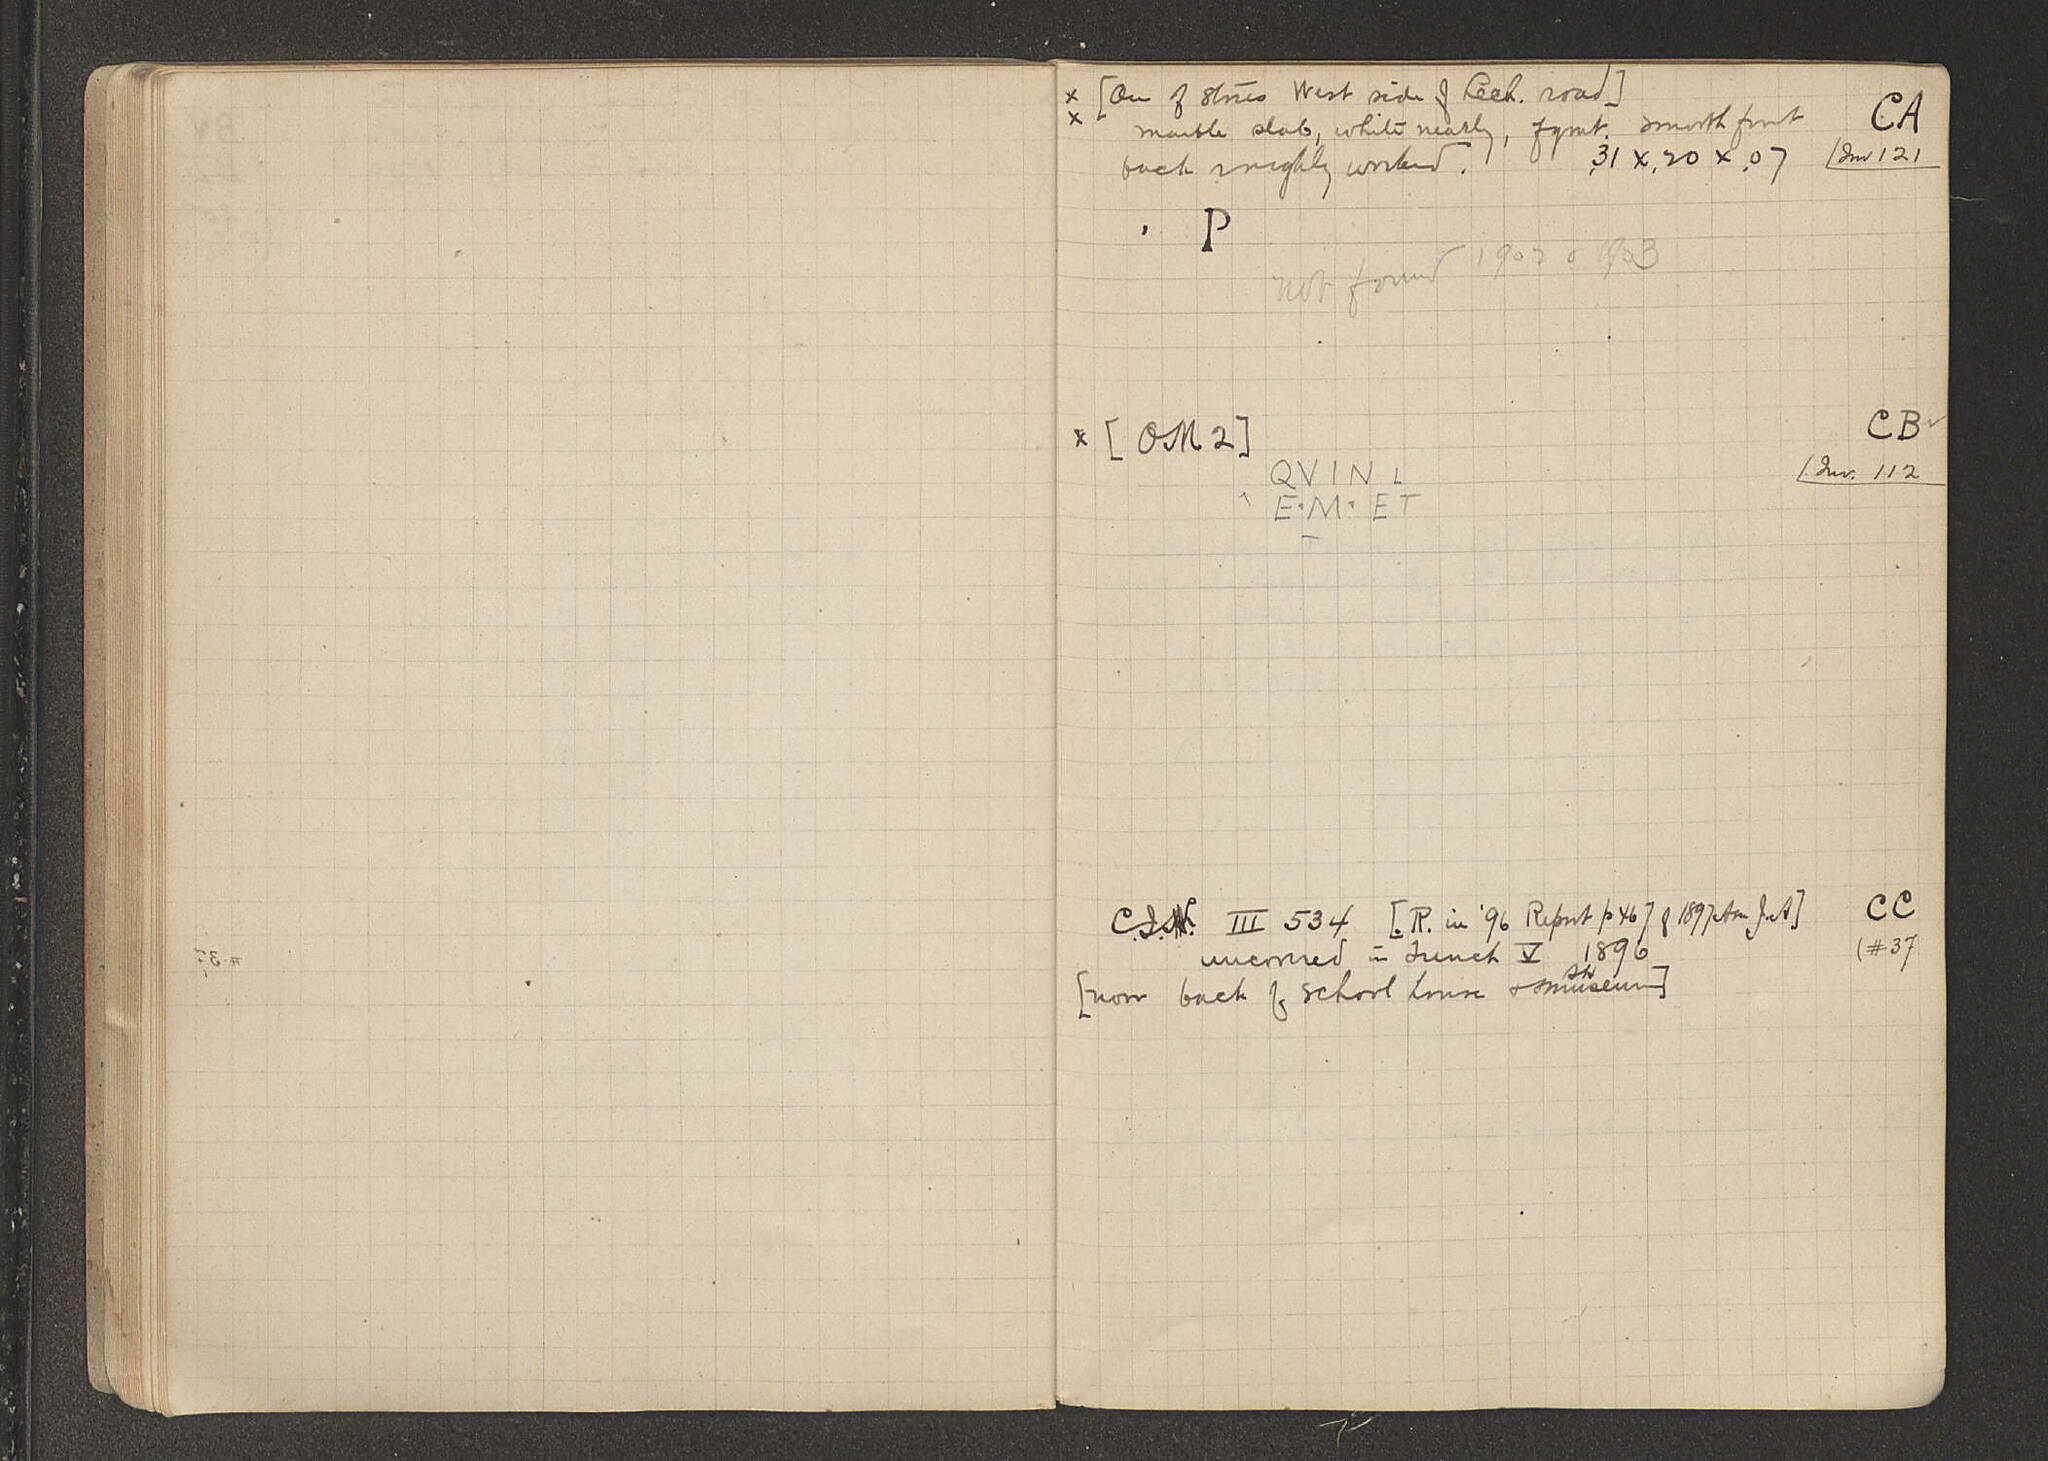 x [One of stones West side of Lech. road] CA
x marble slab, white nearly, fgmt. smooth front
back roughly worked. .31 x .20 x .07 (Inv 121
P
not found 1902 o 1903
x [OM 2] CB
QVINL (Inv. 112
E·M· ET
III 534 [R. in '96 Report p 467 of 1897 Am J. A] CC
uncovered in Trench V 1896 (#37
[now back of school house museum]